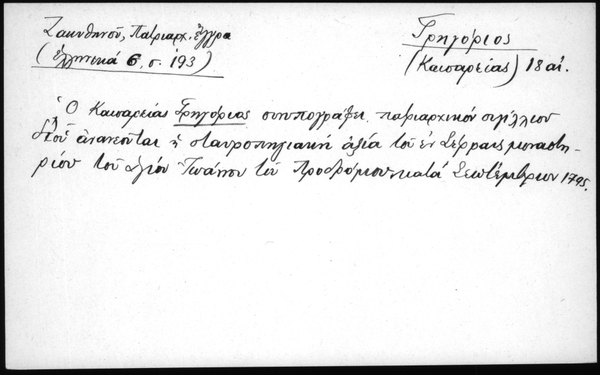 Ζακυθηνοῦ, Πατριαρχ. ἔγγρα
(Ἑλληνικά 6, σ. 193)
Γρηγόριος
(Καισαρείας) 18 αἰ.
Ὁ Καισαρείας Γρηγόριος συνυπογράφει πατριαρχικόν σιγίλλιον
δι' οὗ ἀνανεοῦται ἡ σταυροπηγιακή ἀξία τοῦ ἐν Σέρραις μοναστη-
ρίου τοῦ Ἁγίου Ἰωάννου τοῦ Προδρόμου κατά Σεπτέμβριον 1795.